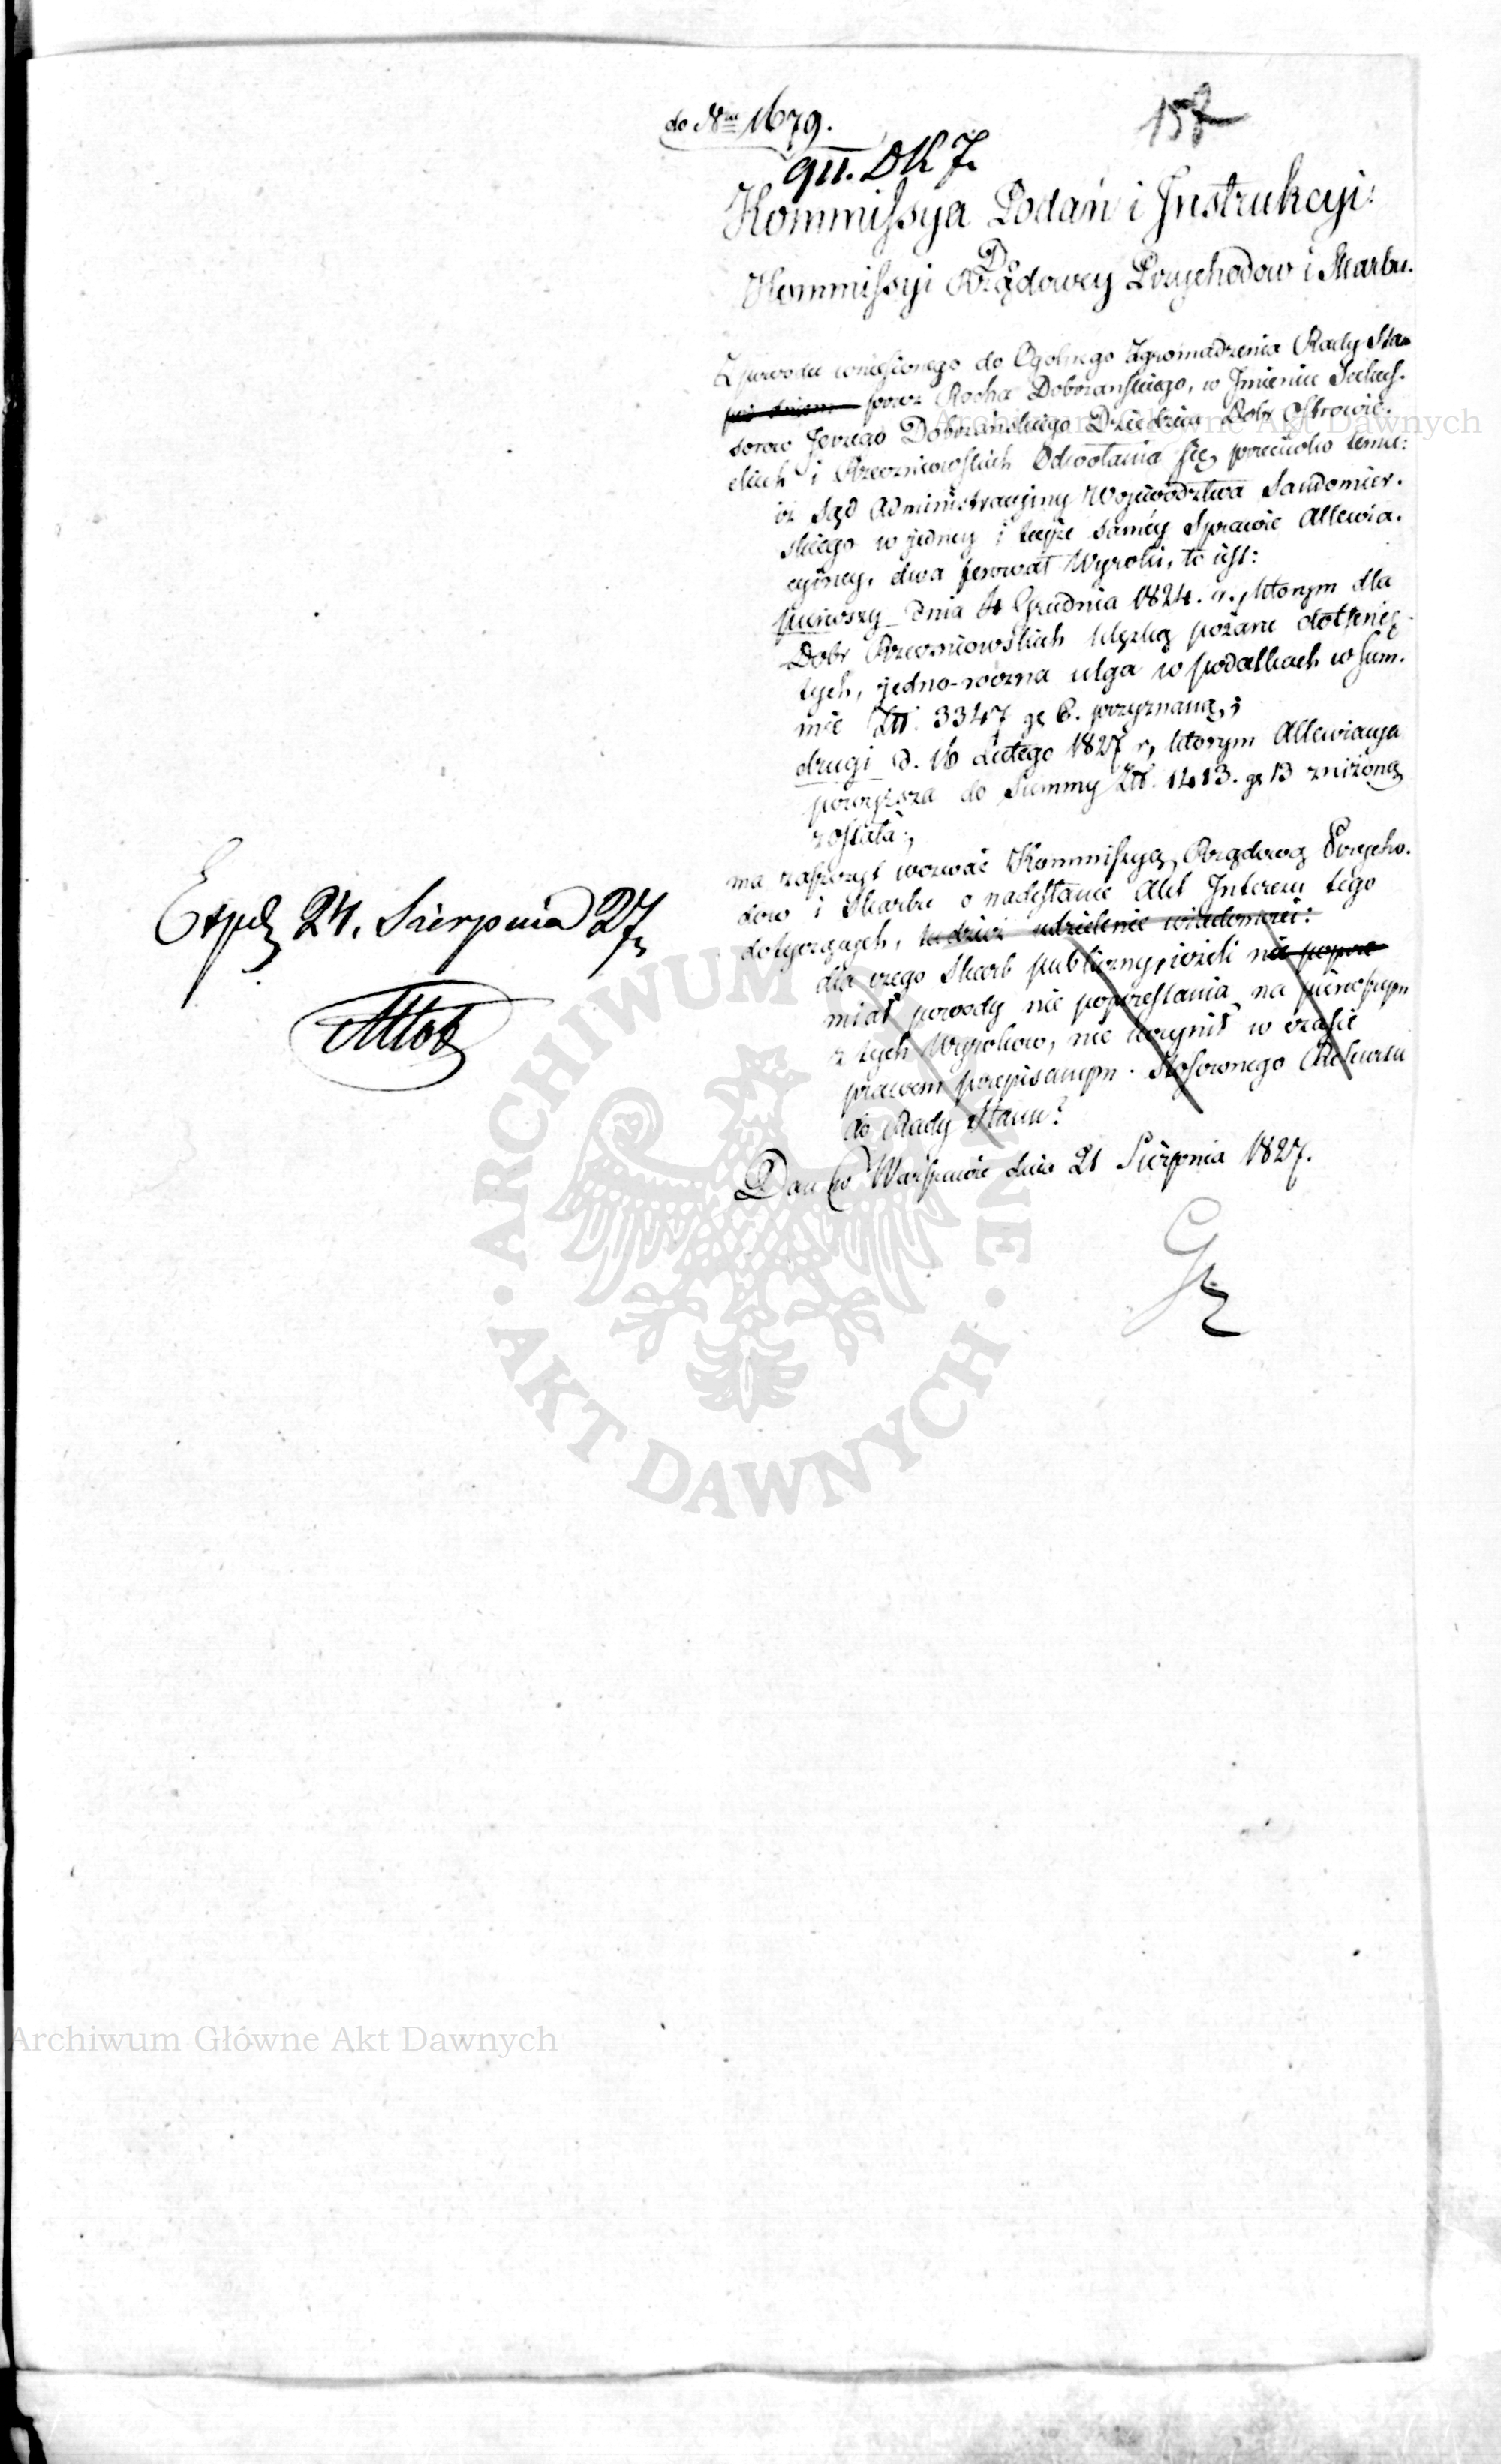 do Nru 1679.
911. DK 7.
157
Kommissya Podań i Instrukcyi:
Do
Kommissyi Rządowey Przychodow i Skarbu.
Z powodu wniesionego do Ogolnego Zgromadzenia Rady Sta-
przez Rocha Doborzanskiego, w Jmieniu Sukces-
sorow Jerzego Doborzanskiego Dziedzica Dobr
i Rzeczniowskich Odwołania się, przeciwko temu:
iż Sąd Administracyiny Woiewodztwa Sandomier-
skiego w jedney i teyże samey Sprawie Allewia-
cyiney, dwa ferował Wyroki, to iest:
pierwszy dnia 4 Grudnia 1824. r., ktorym dla
Dobr Rzeczniowskich klęską pożaru dotknię-
tych, jedno-roczna ulga w podatkach w sum-
mie Złł. 3347 gr 6. przyznaną, i
drugi d. 16 Lutego 1827 r, ktorym Allewiacya
powyższa do Summy Złł. 1413. gr 13 zniżoną
została;
ma zaszczyt wezwać Kommissyą Rządową Przycho-
dow i Skarbu o nadesłanie Akt Interessu tego
dotyczących, tudzież udzielenie wiadomości:
dla czego Skarb publiczny, ieżeli nie poprze
miał powody nie poprzestania na pierwszym
z tych Wyrokow, nie uczynił w czasie
prawem przepisanym stosownego Rekursu
do Rady Stanu?
Dan w Warszawie dnia 21 Sierpnia 1827.
Exped 24. Sierpnia 27
ARCHIWUM GŁÓWNE · AKT DAWNYCH ·
Archiwum Główne Akt Dawnych
Archiwum Główne Akt Dawnych